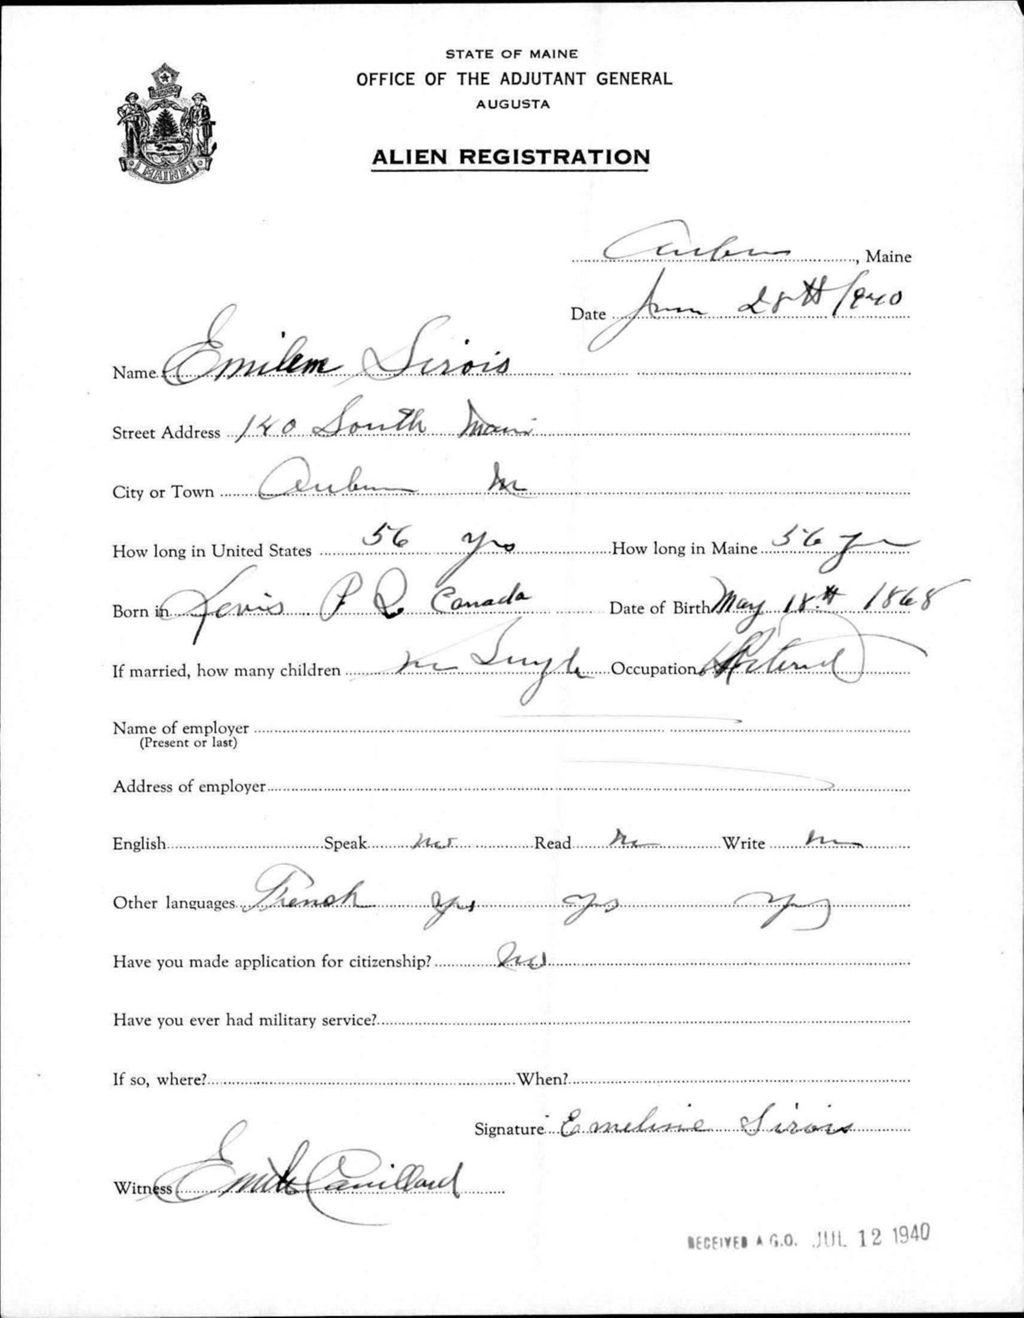 STATE OF MAINE
OFFICE OF THE ADJUTANT GENERAL
AUGUSTA
ALIEN REGISTRATION
MAINE
Auburn, Maine
Date June 28th 1940
Name Sirois
Street Address 140 South Main
City or Town Auburn Me
How long in United States 56 yrs How long in Maine 56 yrs
Born in Levis P Q Canada Date of Birth May 18th 1868
If married, how many children Single Occupation Retired
Name of employer
(Present or last)
Address of employer
English Speak no Read no Write no
Other languages French yes yes yes
Have you made application for citizenship? No
Have you ever had military service?
If so, where? When?
Signature Emeline Sirois
Witness
RECEIVED A.G.O. JUL 12 1940